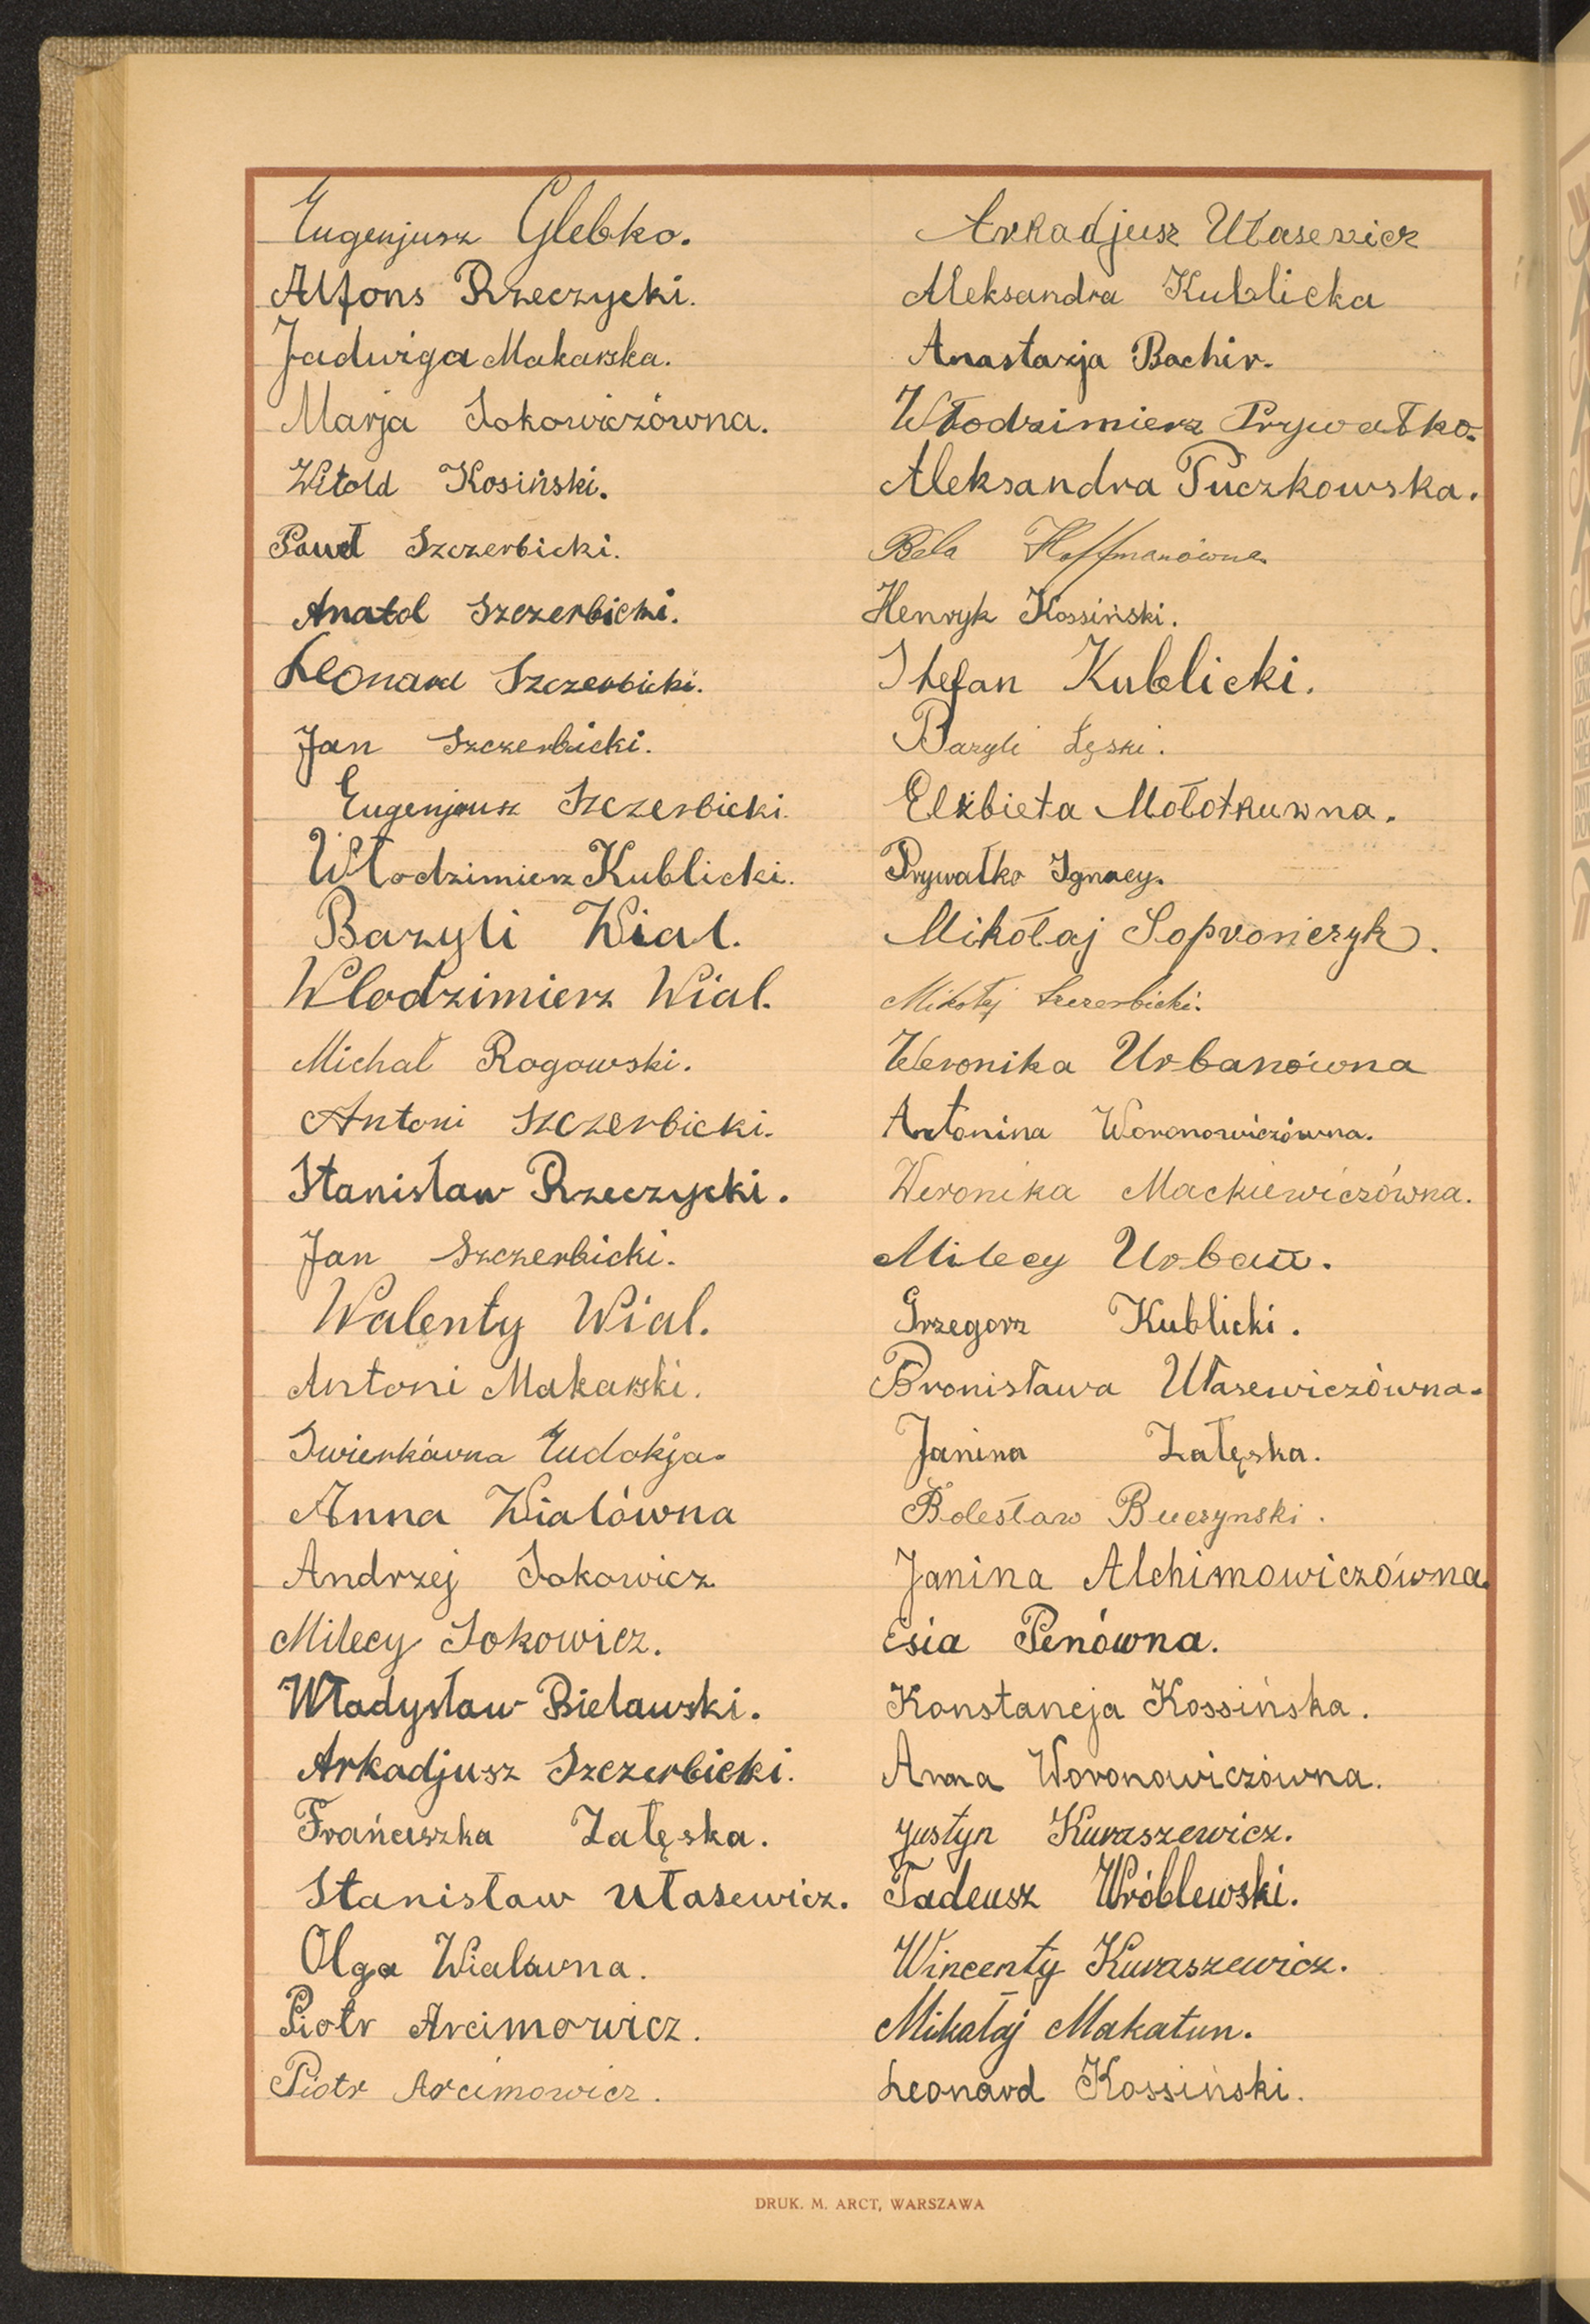 Eugenjusz Glebko.
Alfons Rzeczycki.
Jadwiga Makarska.
Marja Sokowiczówna.
Witold Kosiński.
Paweł Szczerbicki.
Anatol Szczerbicki.
Leonard Szczerbicki.
Jan Szczerbicki.
Eugenjusz Szczerbicki.
Włodzimierz Kublicki.
Bazyli Wial.
Wlodzimierz Wial.
Michał Rogowski.
Antoni Szczerbicki.
Stanisław Rzeczycki.
Jan Szczerbicki.
Walenty Wial.
Antoni Makarski.
Swierkówna Eudokja.
Anna Wialówna
Andrzej Sokowicz.
Milecy Sokowicz.
Władysław Bielawski.
Arkadjusz Szczerbicki.
Frańciszka Załęska.
Stanisław Ułasewicz.
Olga Wialówna.
Piotr Arcimowicz.
Piotr Arcimowicz.
Arkadjusz Ułasewicz
Aleksandra Kublicka
Anastazja Bachir.
Włodzimierz Prywałko.
Aleksandra Puczkowska.
Bela Hoffmanówna
Henryk Kossiński.
Stefan Kublicki.
Bazyli Łęski.
Elżbieta Mołotkuwna.
Prywałko Ignacy.
Mikołaj Soprończyk.
Mikołaj Szczerbicki.
Weronika Urbanówna
Antonina Woronowiczówna.
Weronika Mackiewiczówna.
Milecy Urban.
Grzegorz Kublicki.
Bronisława Ułasewiczówna.
Janina Załęska.
Bolesław Buczynski.
Janina Alchimowiczówna.
Esia Penówna.
Konstancja Kossińska.
Anna Woronowiczówna.
Justyn Kuraszewicz.
Tadeusz Wróblewski.
Wincenty Kuraszewicz.
Mikałaj Makatun.
Leonard Kossiński.
DRUK. M. ARCT, WARSZAWA